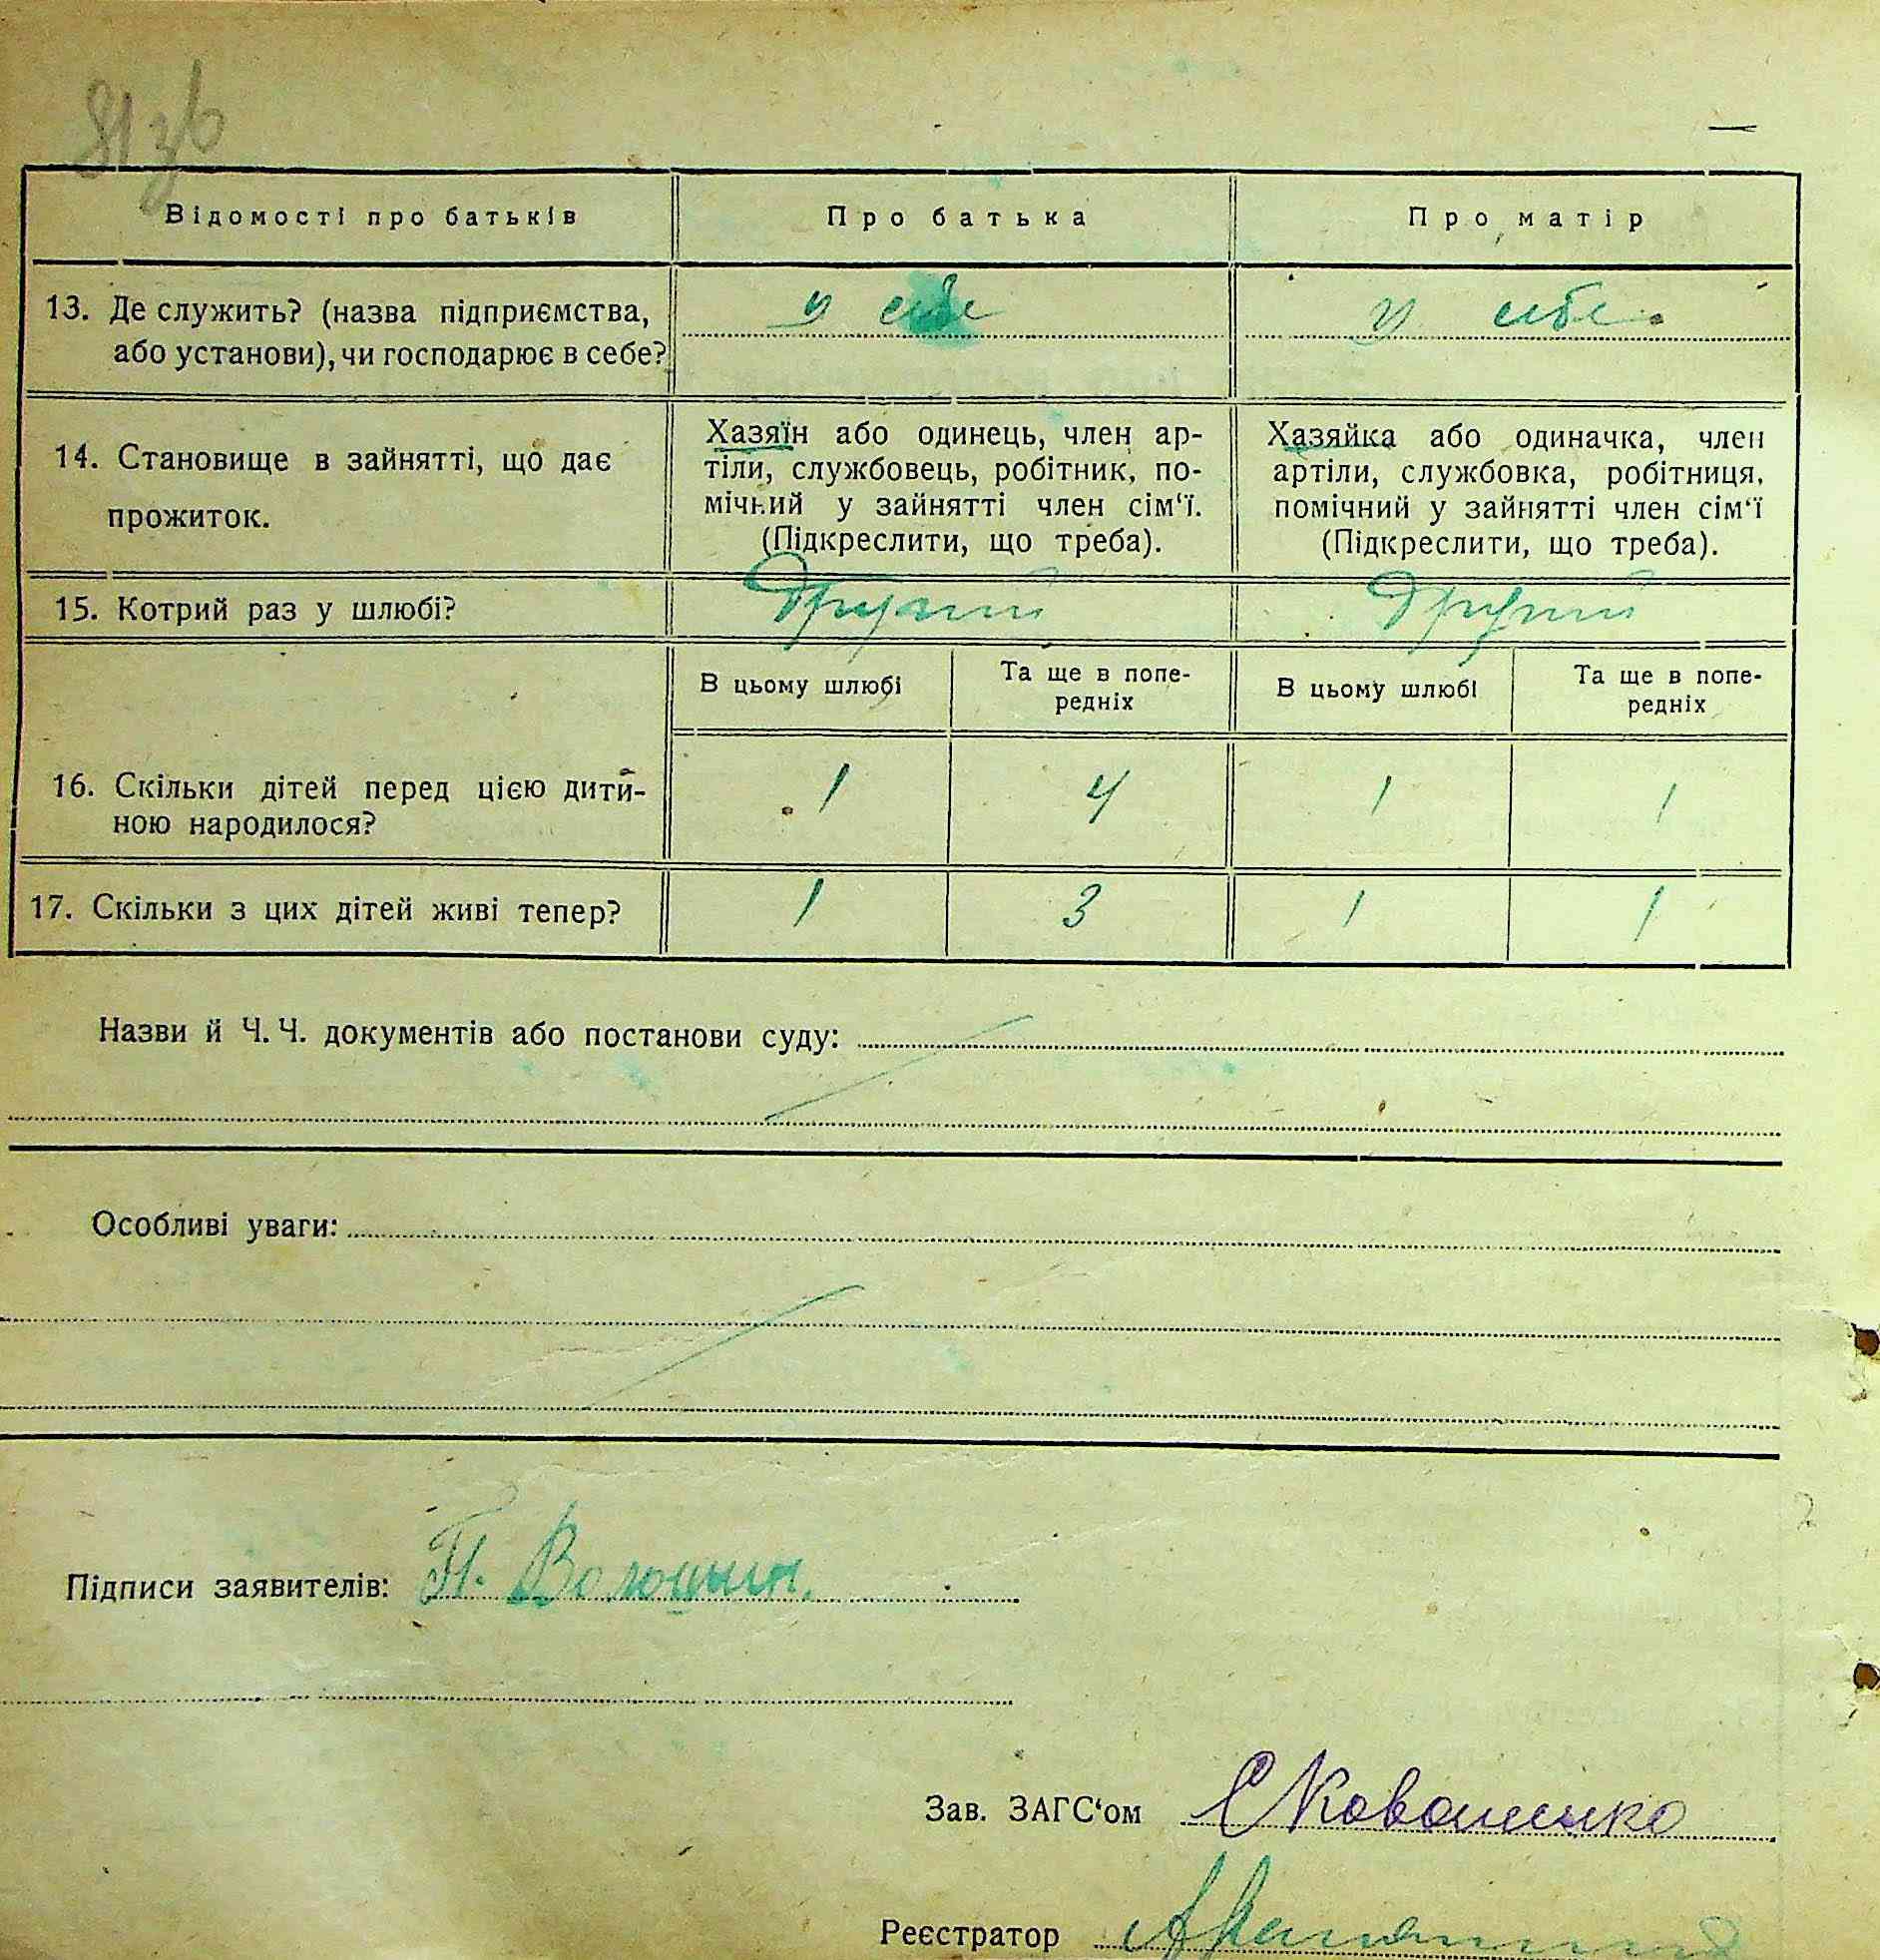 81 зв
Відомості про батьків
Про батька
Про матір
13. Де служить? (назва підприємства,
або установи), чи господарює в себе?
у себе
у себе
14. Становище в зайнятті, що дає
прожиток.
Хазяїн або одинець, член ар-
тіли, службовець, робітник, по-
мічний у зайнятті член сім‘ї.
(Підкреслити, що треба).
Хазяйка або одиначка, член
артіли, службовка, робітниця,
помічний у зайнятті член сім‘ї
(Підкреслити, що треба).
15. Котрий раз у шлюбі?
Другий
Другий
В цьому шлюбі
Та ще в попе-
редніх
В цьому шлюбі
Та ще в попе-
редніх
16. Скільки дітей перед цією дити-
ною народилося?
1
4
1
1
17. Скільки з цих дітей живі тепер?
1
3
1
1
Назви й Ч. Ч. документів або постанови суду:
Особливі уваги:
Підписи заявителів: П. Волошин.
Зав. ЗАГС‘ом
Реєстратор